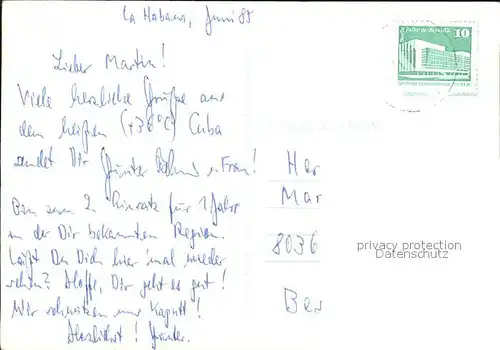 La Habana, Juni 85
Lieber Martin!
Viele herzliche Grüße aus
dem heißen (+36°C) Cuba
sendet Dir Günter u. Frau!
Bin zum 2. Einsatz für 1 Jahr
in der Dir bekannten Region.
Läßt Du Dich hier 'mal wieder
sehen? Hoffe, Dir geht es gut!
Wir schwitzen uns kaputt!
Herzlichst! Günter.
10
Palast der Republik
Her
Mar
8036
Ber
privacy protection
Datenschutz